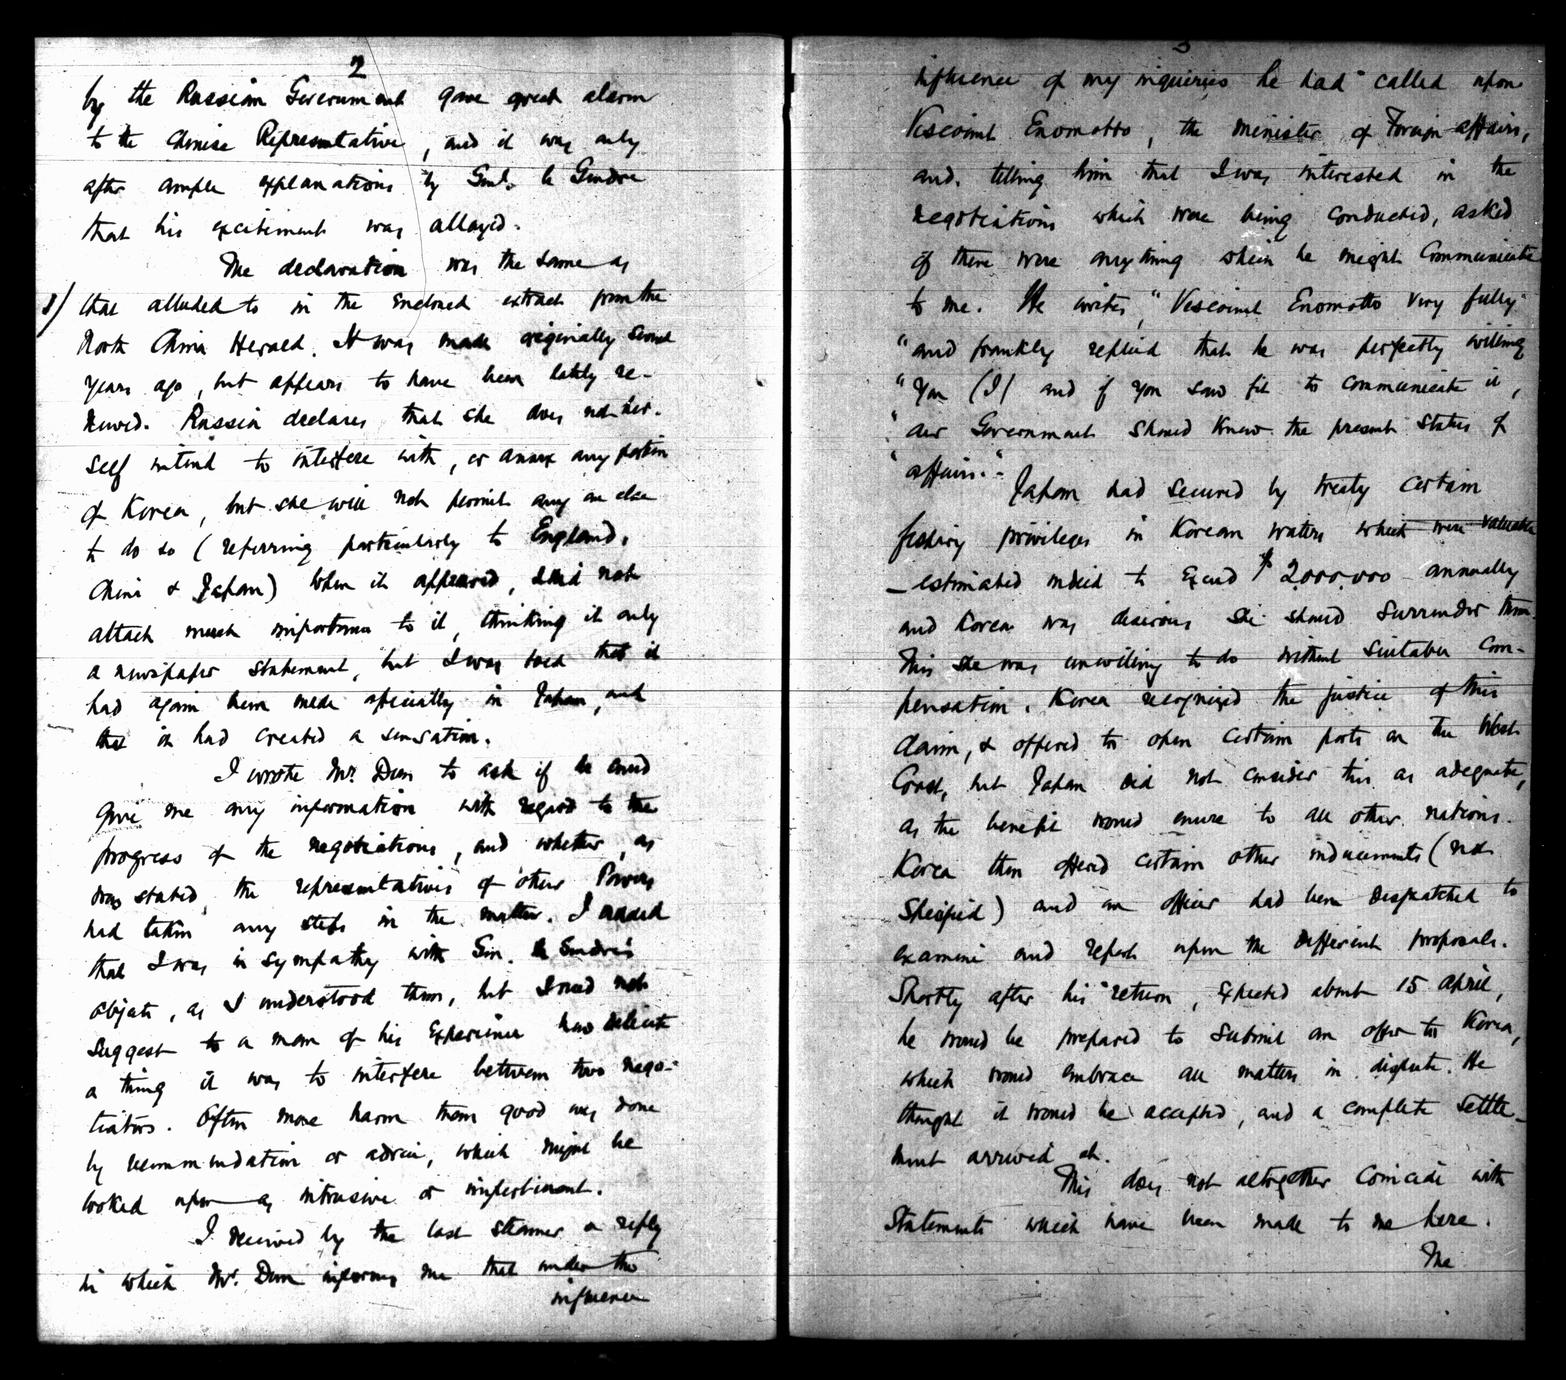 2
by the Russian Government gave great alarm
to the Chinese Representative, and it was only
after ample explanations by Genl. Le Gendre
that his excitement was allayed.
The declaration was the same as
1/ that alluded to in the enclosed extract from the
North China Herald. It was made originally several
years ago, but appears to have been lately re-
newed. Russia declares that she does not her-
self intend to interfere with, or annex any portion
of Korea, but she will not permit any one else
to do so (referring particularly to England,
China & Japan) When it appeared, I did not
attach much importance to it, thinking it only
a newspaper statement, but I was told that it
had again been made officially in Japan, and
that it had created a sensation.
I wrote Mr. Dun to ask if he could
give me any information with regard to the
progress of the negotiations, and whether, as
was stated, the representatives of other Powers
had taken any steps in the matter. I added
that I was in sympathy with Gen. Le Gendre's
objects, as I understood them, but I need not
suggest to a man of his experience how delicate
a thing it was to interfere between two nego-
tiators. Often more harm than good was done
by recommendation or advice, which might be
looked upon as intrusive or impertinent.
I received by the last steamer a reply
in which Mr. Dun informs me that under the
influence
3
influence of my inquiries he had called upon
Viscount Enomotto, the minister of Foreign affairs,
and, telling him that I was interested in the
negotiations which were being conducted, asked
if there were anything which he might communicate
to me. He writes, "Viscount Enomotto very fully
"and frankly replied that he was perfectly willing
"you (I) and if you saw fit to communicate it,
"our Government should know the present status of
"affairs."-
Japan had secured by treaty certain
fishing privileges in Korean waters which were valuable
- estimated indeed to exceed $2,000,000 - annually
and Korea was desirous she should surrender them.
This she was unwilling to do without suitable com-
pensation. Korea recognized the justice of this
claim, & offered to open certain ports on the West
Coast, but Japan did not consider this as adequate,
as the benefit would enure to all other nations.
Korea then offered certain other inducements (not
specified) and an officer had been despatched to
examine and report upon the different proposals.
Shortly after his return, expected about 15 April,
he would be prepared to submit an offer to Korea,
which would embrace all matters in dispute. He
thought it would be accepted, and a complete settle-
ment arrived at.
This does not altogether coincide with
statements which have been made to me here.
The